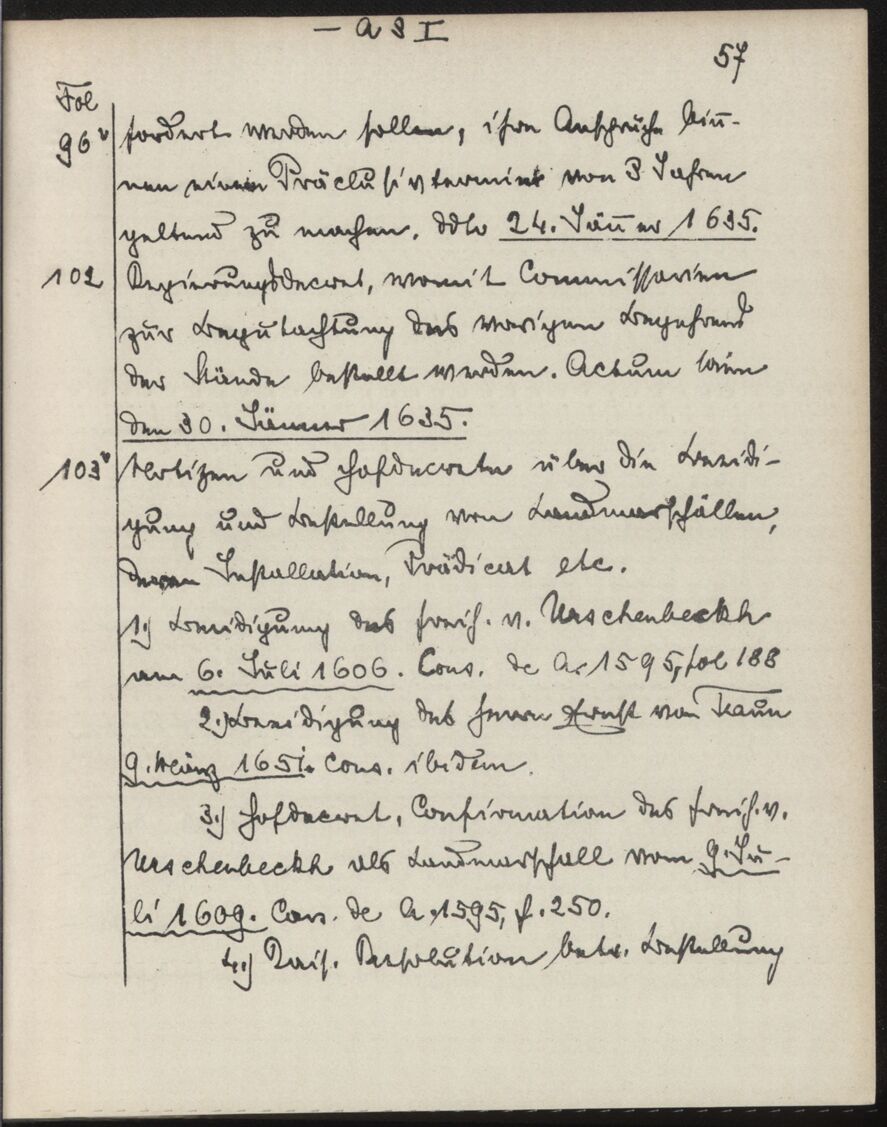 - A 3 I
57
Fol
96v fordert werden sollen, ihre Ansprüche bin̅-
nen einem Präclusivtermine von 3 Jahren
geltend zu machen. ddto 24. Jän̅er 1635.
102 Regierungsdecret, womit Commissarien
zur Begutachtung des vorigen Begehrens
der Stände bestellt werden. Actum Wien
den 30. Jänner 1635.
103v Notizen und Hofdecrete über die Beeidi-
gung und Bestellung von Landmarschällen,
deren Installation, Prädicat etc.
1.) Beeidigung des Freih. v. Urschenbeckh
am 6. Juli 1606. Cons. de A. 1595, fol 188
2.) Beeidigung des Herrn Ernst von Traun
9. März 1651. Cons. ibidem.
3.) Hofdecret, Confirmation des Freih. v.
Urschenbeckh als Landmarschall vom 9. Ju-
li 1609. Cons. de A. 1595, f. 250.
4.) Kais. Resolution betr. Bestellung